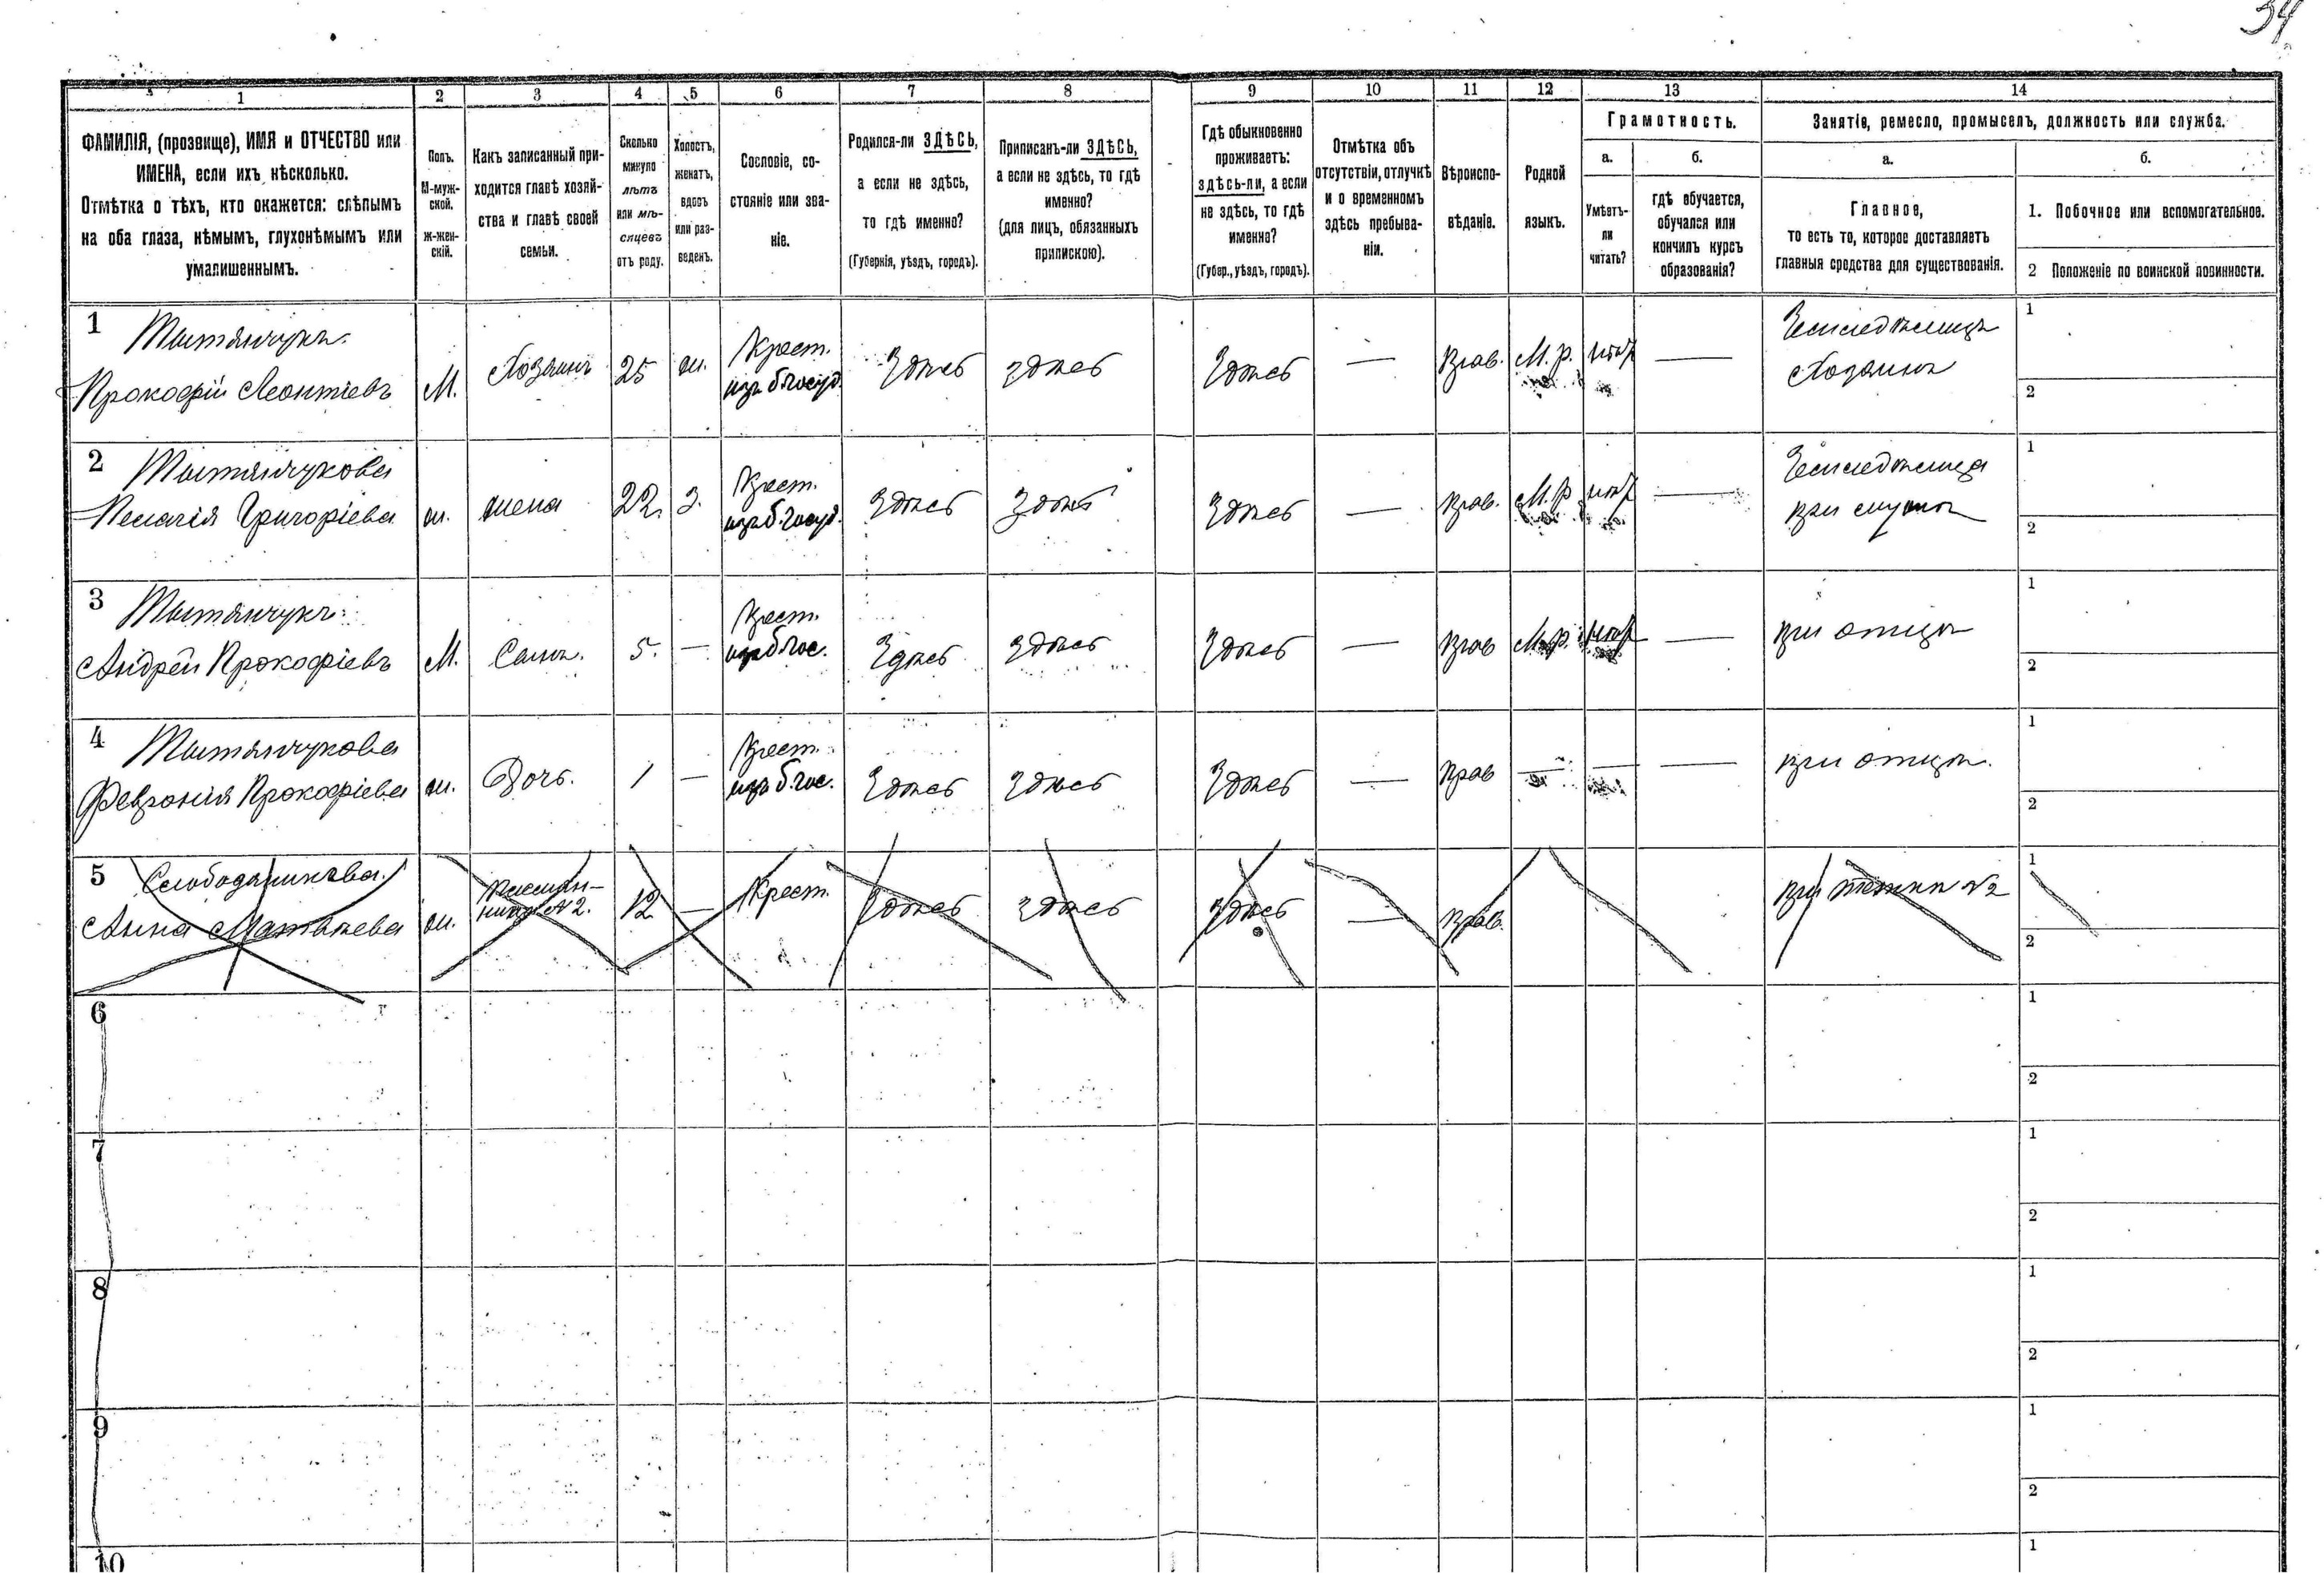 34
1 2 3 4 5 6 7 8 9 10 11 12 13 14
ФАМИЛІЯ, (прозвище), ИМЯ и ОТЧЕСТВО или
ИМЕНА, если ихъ нѣсколько.
Отмѣтка о тѣхъ, кто окажется: слѣпымъ
на оба глаза, нѣмымъ, глухонѣмымъ или
умалишеннымъ.
Полъ.
М-муж-
ской.
Ж-жен-
скій.
Какъ записанный при-
ходится главѣ хозяй-
ства и главѣ своей
семьи.
Сколько
минуло
лѣтъ
или мѣ-
сяцевъ
отъ роду.
Холостъ,
женатъ,
вдовъ
или раз-
веденъ.
Сословіе, со-
стояніе или зва-
ніе.
Родился-ли ЗДѢСЬ,
а если не здѣсь,
то гдѣ именно?
(Губернія, уѣздъ, городъ).
Приписанъ-ли ЗДѢСЬ,
а если не здѣсь, то гдѣ
именно?
(для лицъ, обязанныхъ
припискою).
Гдѣ обыкновенно
проживаетъ:
здѣсь-ли, а если
не здѣсь, то гдѣ
именно?
(Губер., уѣздъ, городъ).
Отмѣтка объ
отсутствіи, отлучкѣ
и о временномъ
здѣсь пребыва-
ніи.
Вѣроиспо-
вѣданіе.
Родной
языкъ.
Грамотность.
а.
Умѣетъ-
ли
читать?
б.
гдѣ обучается,
обучался или
кончилъ курсъ
образованія?
Занятіе, ремесло, промыселъ, должность или служба.
а.
Главное,
то есть то, которое доставляетъ
главныя средства для существованія.
б.
1. Побочное или вспомогательное.
2 Положеніе по воинской повинности.
1 Тытянчукъ
Прокофій Леонтіевъ
М.
Хозяинъ
25
ж.
Крест.
изъ б. госуд.
Здѣсь
здѣсь
Здѣсь
—
Прав.
М. р.
нѣт
—
Земледѣлецъ
Хозяинъ
1
2
2 Тытянчукова
Пелагія Григоріева
ж.
жена
22.
З.
Крест.
изъ б. госуд.
Здѣсь
Здѣсь
Здѣсь
—
Прав.
М. р
нѣт
—
Земледѣлица
при мужѣ
1
2
3 Тытянчукъ
Андрей Прокофіевъ
М.
Сынъ.
5.
—
Крест.
изъ б. гос.
Здѣсь
Здѣсь
Здѣсь
—
Прав
М. р.
нѣт
—
при отцѣ
1
2
4 Тытянчукова
Февронія Прокофіева
ж.
Дочь.
1
—
Крест.
изъ б. гос.
Здѣсь
Здѣсь
Здѣсь
—
Прав
—
—
—
при отцѣ.
1
2
5
Анна Матвѣева
ж.
12
—
Крест.
Здѣсь
Здѣсь
Здѣсь
—
Прав.
при теткѣ №2
1
2
6
1
2
7
1
2
8
1
2
9
1
2
10
1